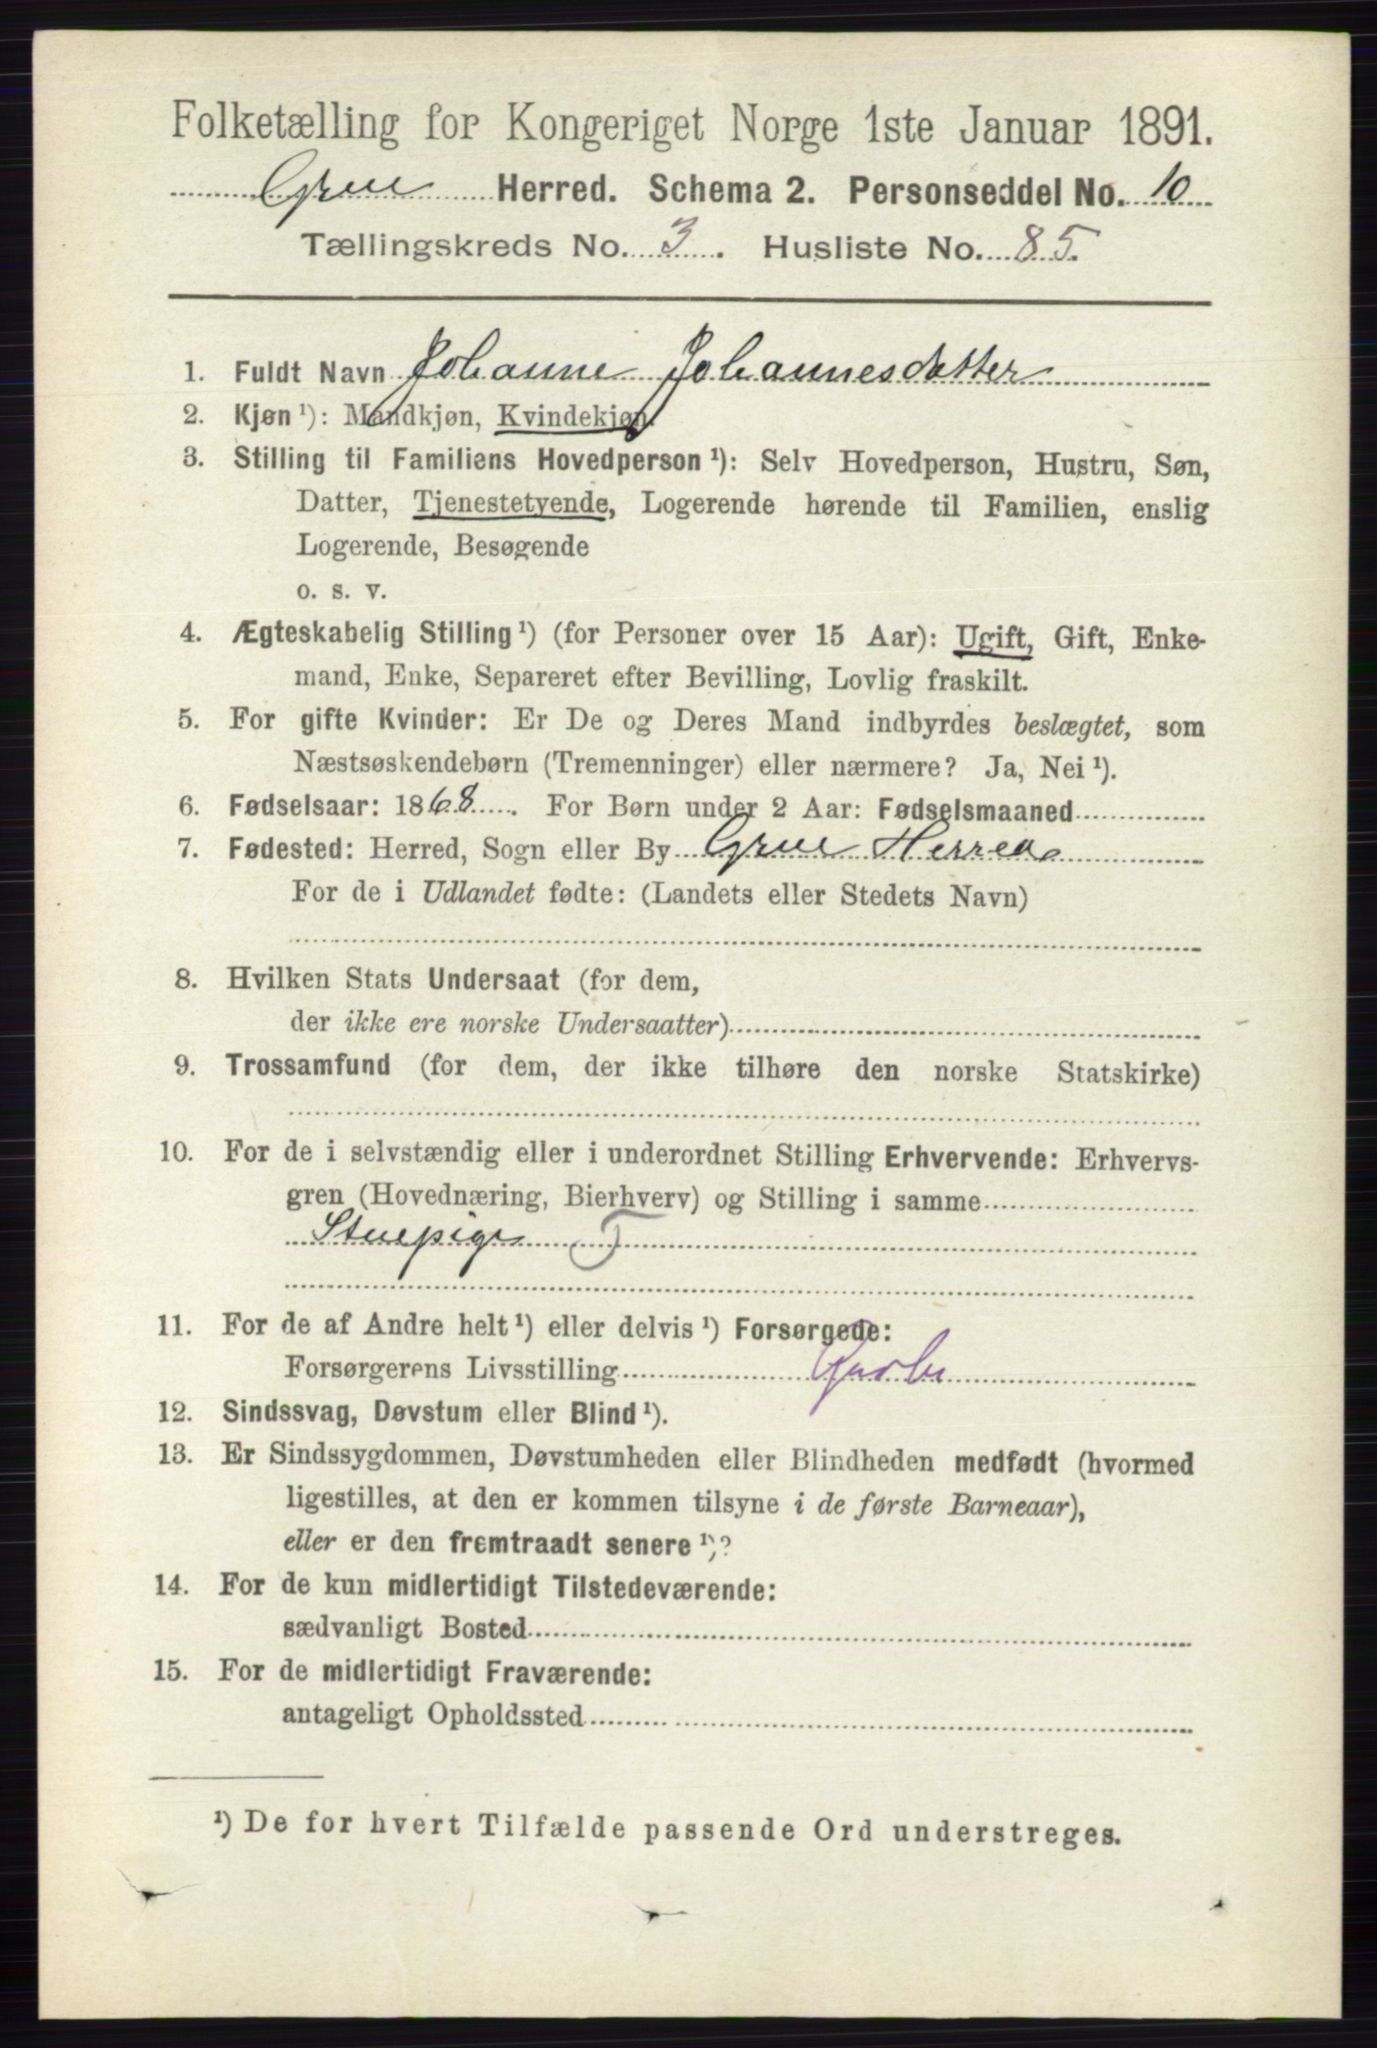 Folketælling for Kongeriget Norge 1ste Januar 1891.
Grue Herred. Schema 2. Personseddel No. 10
Tællingskreds No. 3. Husliste No. 85.
1. Fuldt Navn Johanne Johannesdatter
2. Kjøn¹): Mandkjøn, Kvindekjøn.
3. Stilling til Familiens Hovedperson¹): Selv Hovedperson, Hustru, Søn,
Datter, Tjenestetyende, Logerende hørende til Familien, enslig
Logerende, Besøgende
o. s. v.
4. Ægteskabelig Stilling¹) (for Personer over 15 Aar): Ugift, Gift, Enke-
mand, Enke, Separeret efter Bevilling, Lovlig fraskilt.
5. For gifte Kvinder: Er De og Deres Mand indbyrdes beslægtet, som
Næstsøskendebørn (Tremenninger) eller nærmere? Ja, Nei¹).
6. Fødselsaar: 1868. For Børn under 2 Aar: Fødselsmaaned
7. Fødested: Herred, Sogn eller By Grue Herred
For de i Udlandet fødte: (Landets eller Stedets Navn)
8. Hvilken Stats Undersaat (for dem,
der ikke ere norske Undersaatter)
9. Trossamfund (for dem, der ikke tilhøre den norske Statskirke)
10. For de i selvstændig eller i underordnet Stilling Erhvervende: Erhvervs-
gren (Hovednæring, Bierhverv) og Stilling i samme
Stuepige T
11. For de af Andre helt¹) eller delvis¹) Forsørgede:
Forsørgerens Livsstilling
12. Sindssvag, Døvstum eller Blind¹).
13. Er Sindssygdommen, Døvstumheden eller Blindheden medfødt (hvormed
ligestilles, at den er kommen tilsyne i de første Barneaar),
eller er den fremtraadt senere¹)?
14. For de kun midlertidigt Tilstedeværende:
sædvanligt Bosted
15. For de midlertidigt Fraværende:
antageligt Opholdssted
¹) De for hvert Tilfælde passende Ord understreges.